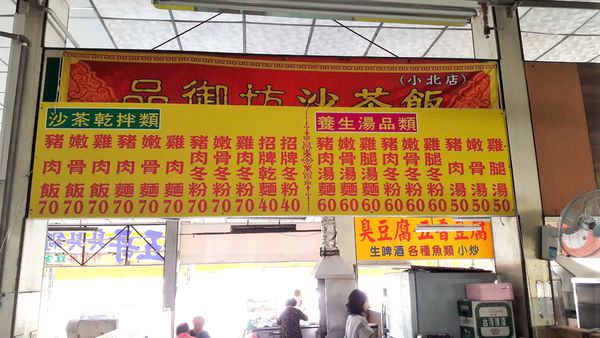 品御坊沙茶飯
(小北店)
沙茶乾拌類
豬肉飯70
嫩骨飯70
雞肉飯70
豬肉麵70
嫩骨麵70
雞肉麵70
豬肉冬粉70
嫩骨冬粉70
雞肉冬粉70
招牌乾麵40
招牌冬粉40
養生湯品類
豬肉湯麵60
嫩骨湯麵60
雞腿湯麵60
豬肉冬粉60
嫩骨冬粉60
雞腿冬粉60
豬肉湯50
嫩骨湯50
雞腿湯50
臭豆腐 五香豆腐
生啤酒 各種魚類 小炒
五哥臭臭鍋
台灣啤酒